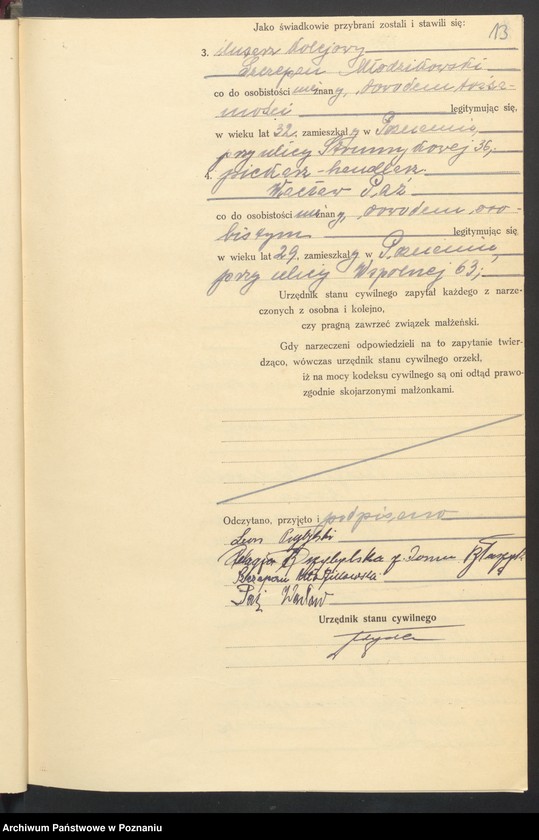 13
Jako świadkowie przybrani zostali i stawili się:
3. ślusarz kolejowy
Szczepan Młodzikowski
co do osobistości nieznany, dowodem tożsa-
mości legitymując się,
w wieku lat 32, zamieszkały w Poznaniu,
przy ulicy Strumykowej 36,-
4. piekarz-handlarz
Wacław Paź
co do osobistości nieznany, dowodem oso-
bistym legitymując się
w wieku lat 29, zamieszkały w Poznaniu,
przy ulicy Wspólnej 63,-
Urzędnik stanu cywilnego zapytał każdego z narze-
czonych z osobna i kolejno,
czy pragną zawrzeć związek małżeński.
Gdy narzeczeni odpowiedzieli na to zapytanie twier-
dząco, wówczas urzędnik stanu cywilnego orzekł,
iż na mocy kodeksu cywilnego są oni odtąd prawo-
zgodnie skojarzonymi małżonkami.
Odczytano, przyjęto i podpisano
Leon Przybylski
Przybylska z domu
Szczepan Młodzikowski
Paź Wacław
Urzędnik stanu cywilnego
Archiwum Państwowe w Poznaniu